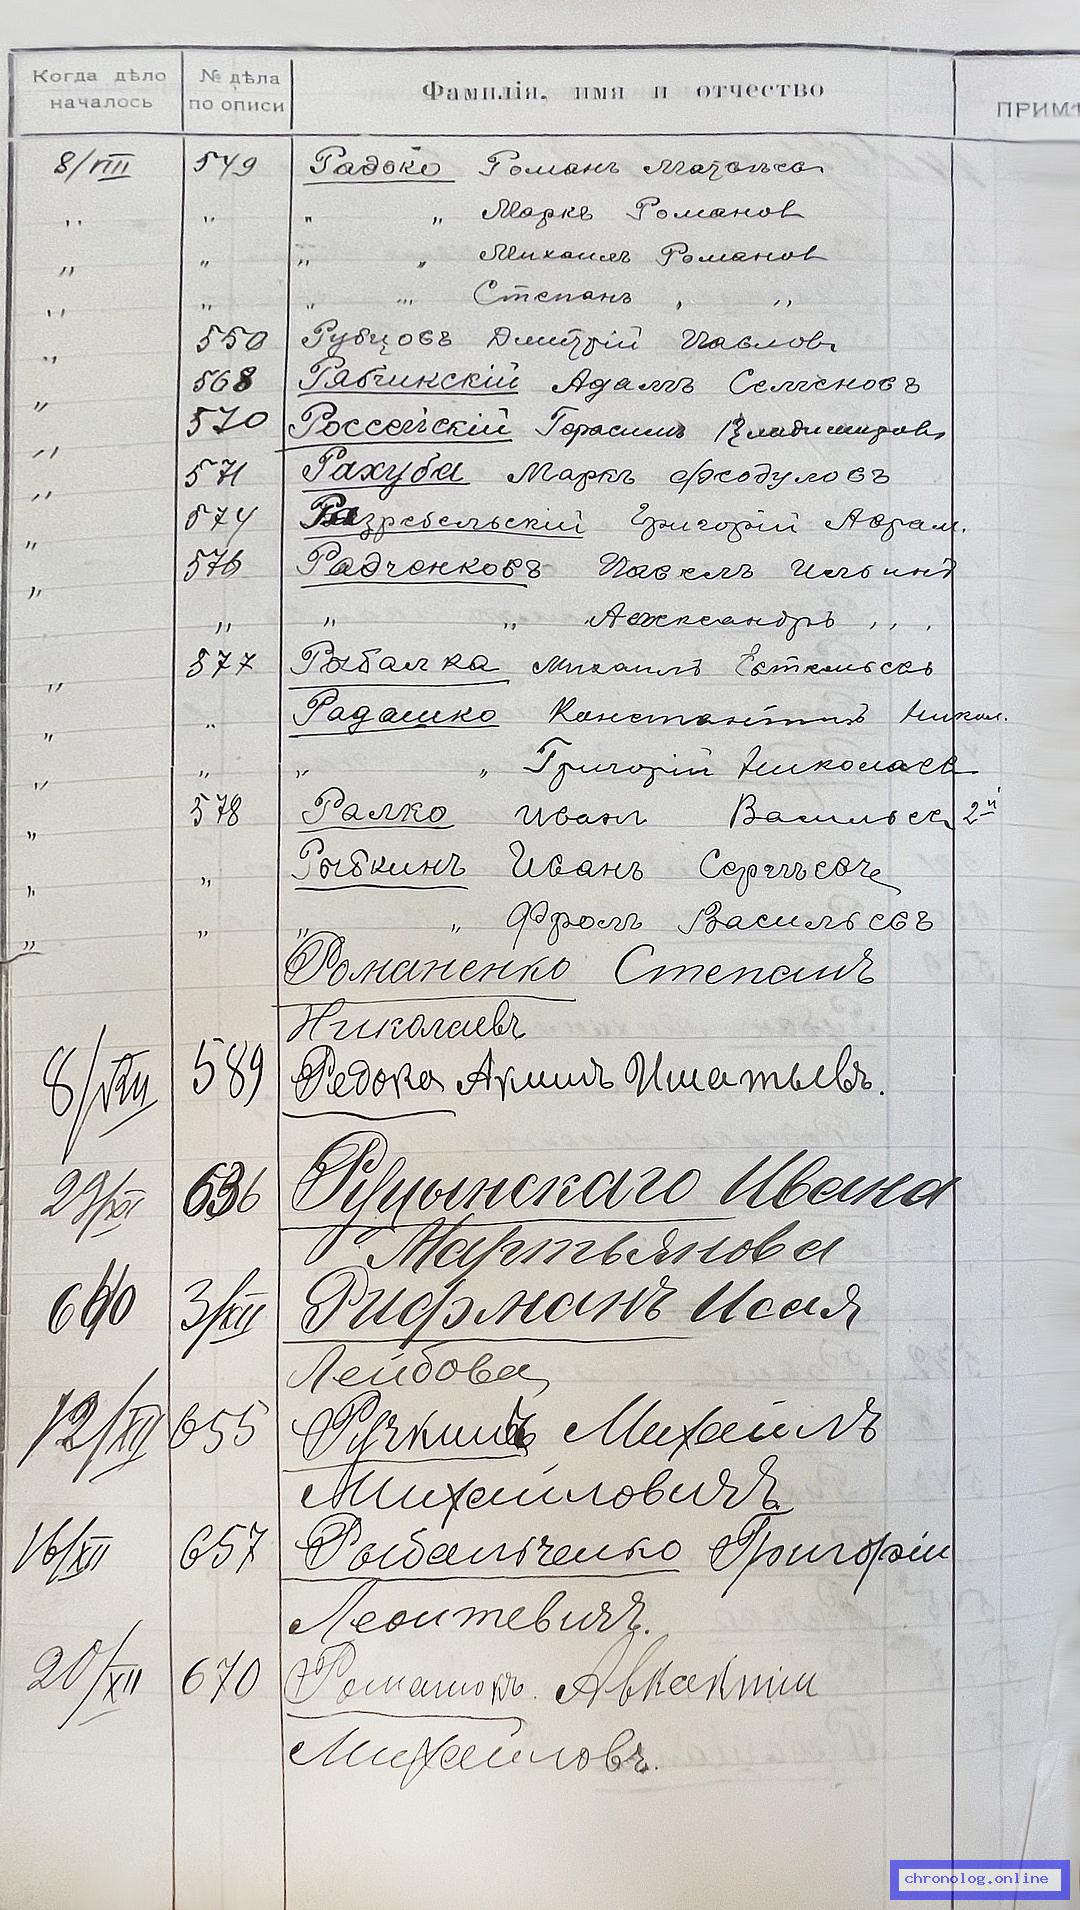 Когда дѣло началось № дѣла по описи Фамилія, имя и отчество ПРИМѢ
8/VIII 549 Радоко Романъ Матвѣев
" " " " Маркъ Романов
" " " " Михаилъ Романов
" " " " Степанъ " "
" 550 Рубцовъ Дмитрій Павловъ
" 568 Рябчикскій Адамъ Семеновъ
" 570 Россейскій Герасимъ Владимировъ
" 571 Рахуба Маркъ Феодуловъ
" 574 Григорій Аврам.
" 576 Радченковъ Павелъ Ильинъ
" " " Александръ " "
" 577 Рыбалка Михаилъ
" " Радашко Константинъ Никол.
" " " " Григорій Николаев
" 578 Ралко Иванъ Васильев 2й
" " Рыбкинъ Иванъ Сергѣевъ
" " " " Фролъ Васильевъ
Романенко Степанъ
Николаевъ
8/VIII 589 Редока Игнатьевъ.
29/XI 636 Ивана
Мартьянова
640 3/XII Рифманъ Исая
Лейбова
12/XII 655 Ручкинъ Михаилъ
Михайловичъ
16/XII 657 Рыбальченко Григорій
Леонтевичъ.
20/XII 670 Ромашокъ.
Михайловъ.
chronolog.online